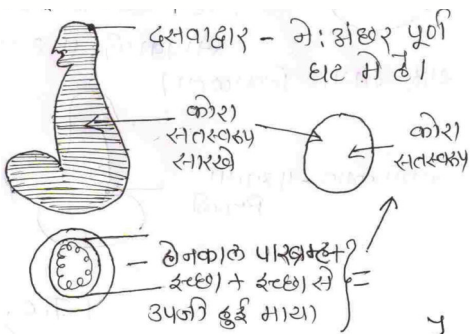 दसवाद्वार - ने:अंछर पूर्ण
घट मे है।
कोरा
सतस्वरुप
सारखे
कोरा
सतस्वरुप
होनकाल पारब्रम्ह+
ईच्छा + ईच्छा से
उपजी हुई माया
=